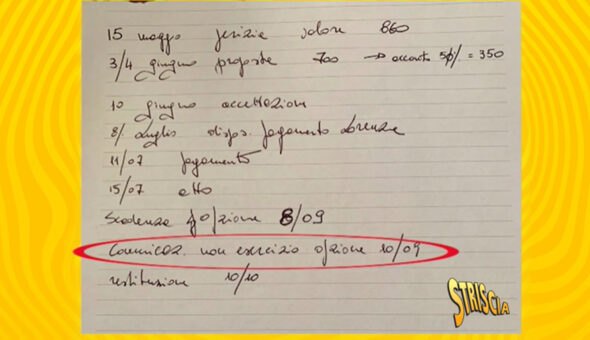 15 maggio perizia valore 860
3/4 giugno proposta 700 → acconto 50% = 350
10 giugno accettazione
8/ Luglio dispo. pagamento Lorenza
11/07 pagamento
15/07 atto
Scadenza opzione 8/09
Comunicaz. non esercizio opzione 10/09
restituzione 10/10
STRISCIA